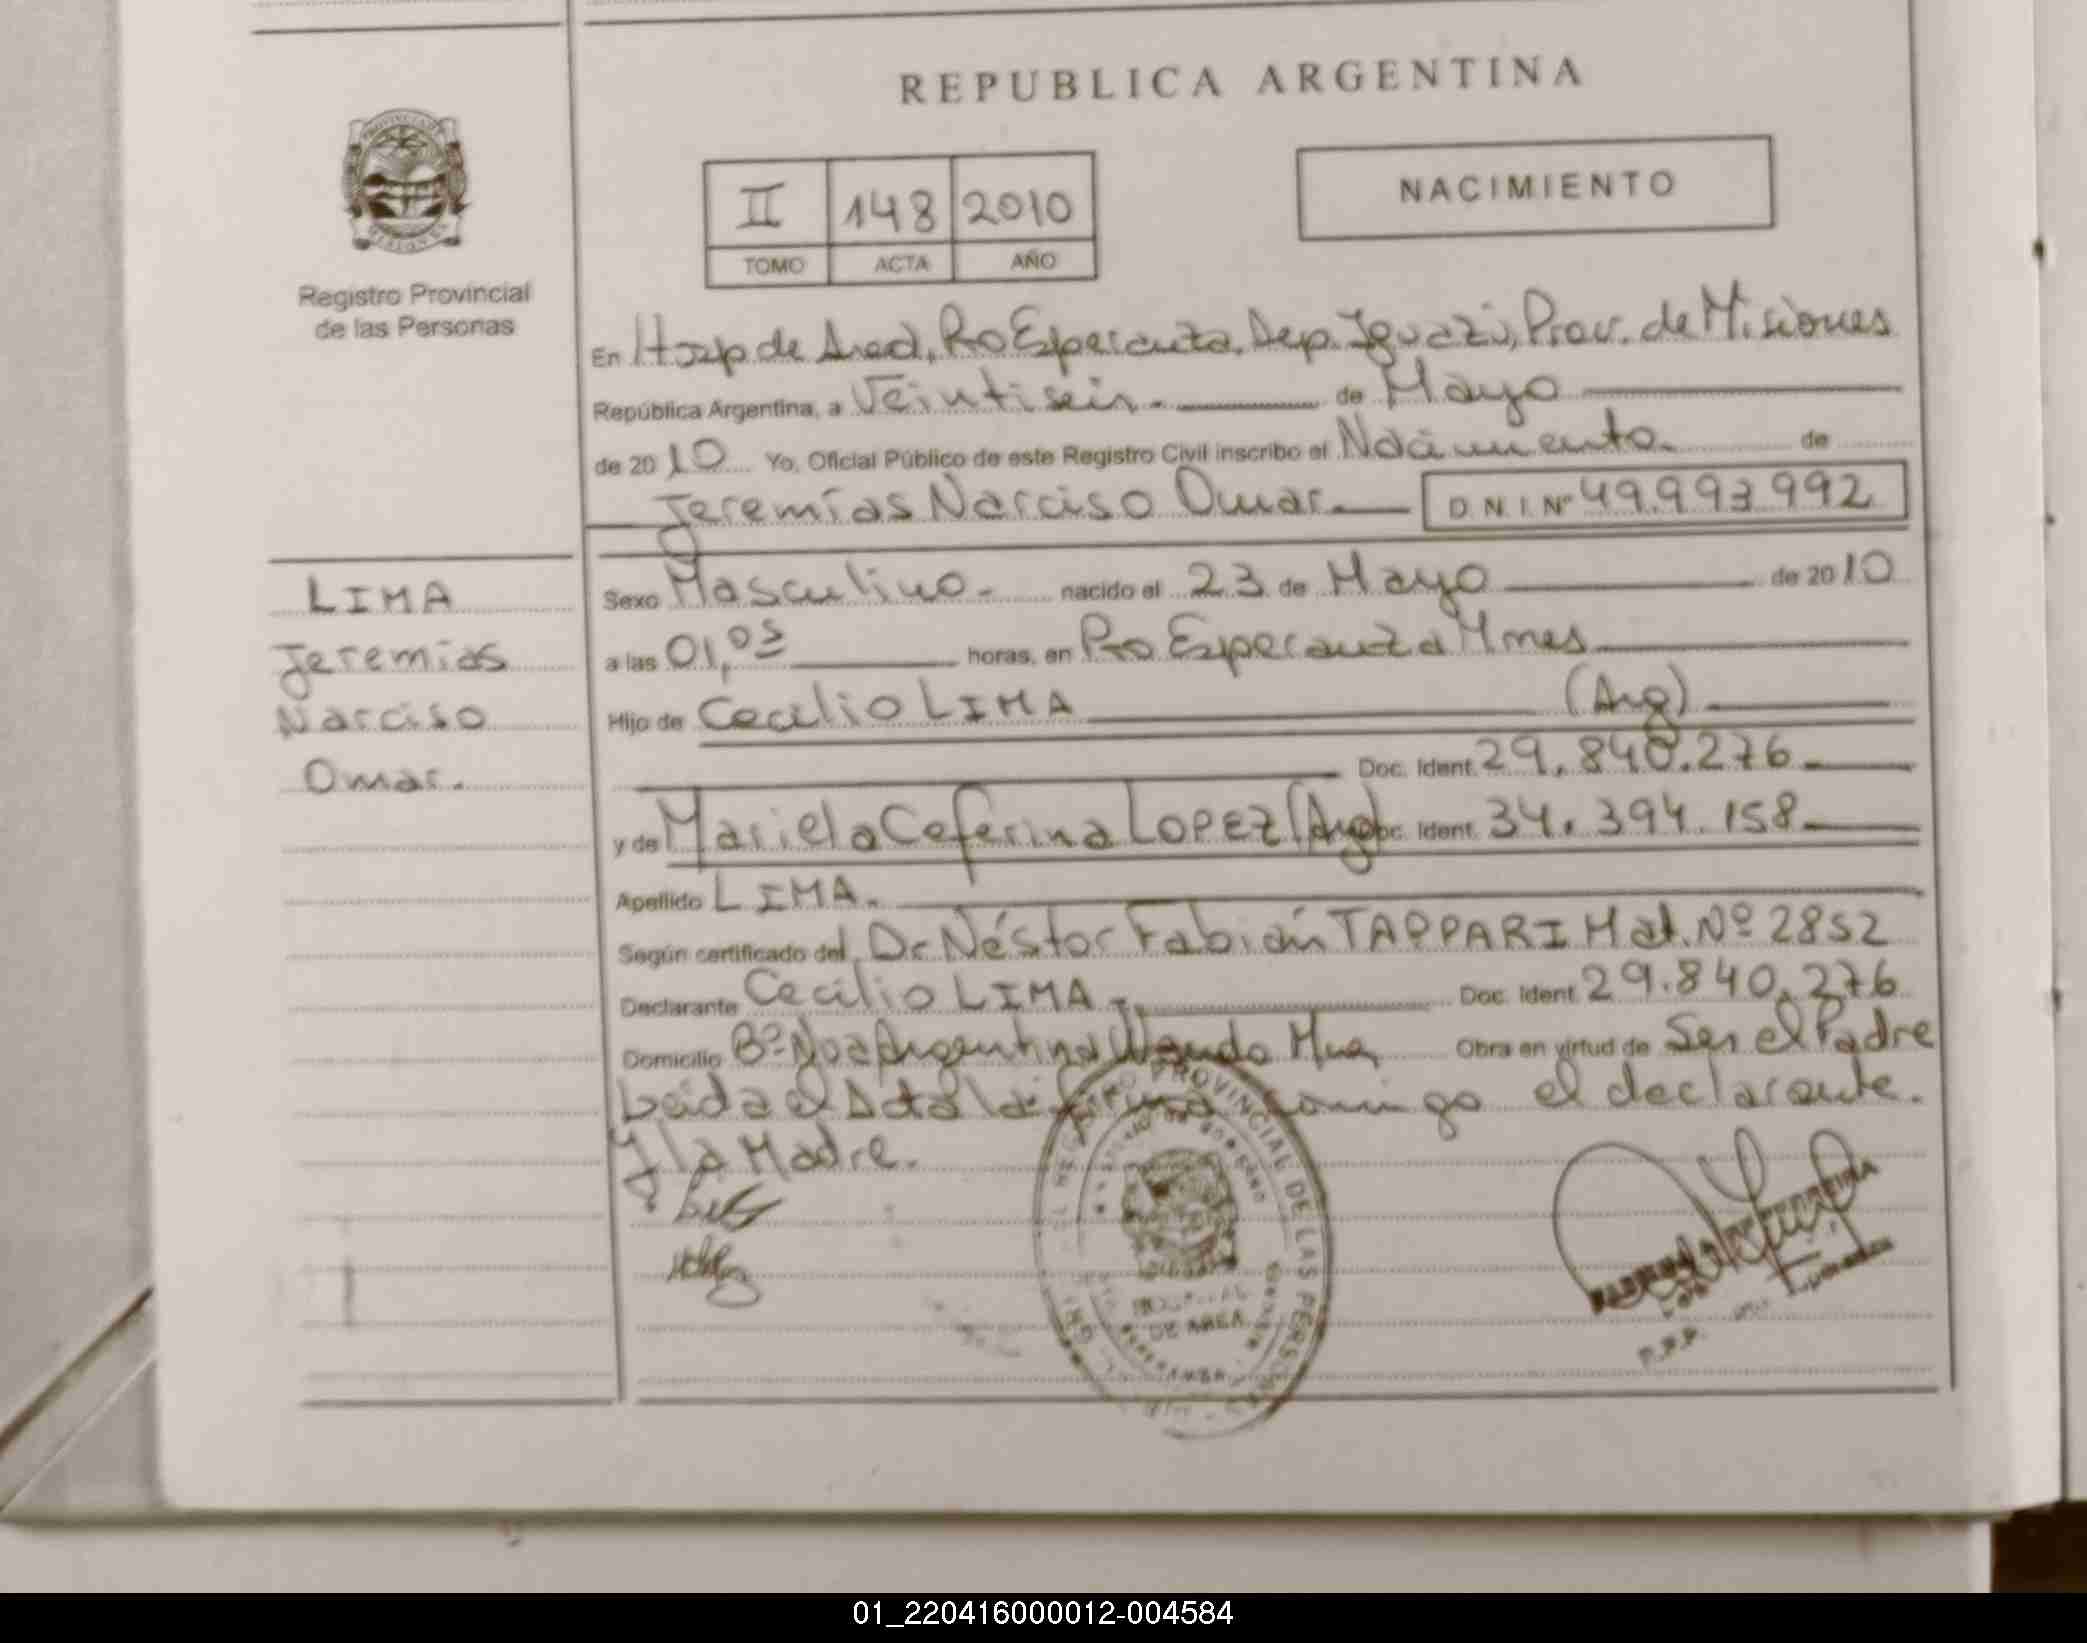 REPUBLICA ARGENTINA
II 148 2010
TOMO ACTA AÑO
NACIMIENTO
Registro Provincial
de las Personas
En Hosp de Area, Pto Esperanza, Dep. Iguazú, Prov. de Misiones
República Argentina, a Veintiseis de Mayo
de 2010 Yo, Oficial Público de este Registro Civil inscribo el Nacimiento de
Jeremías Narciso Omar D N I Nº 49.993 992
LIMA
Jeremías
Narciso
Omar.
Sexo Masculino nacido el 23 de Mayo de 2010
a las 01,05 horas, en Pto Esperanza Mnes
Hijo de Cecilio LIMA (Arg)
Doc. Ident. 29.840.276
y de Mariela Ceferina LOPEZ (Arg) Doc. Ident. 34.394.158
Apellido LIMA.
Según certificado del Dr Néstor Fabián TAPPARI Mat. Nº 2852
Declarante Cecilio LIMA Doc. Ident. 29.840.276
Domicilio Bº Argentina Wanda Obra en virtud de Ser el Padre
Leída el Acta la firma conmigo el declarante.
Y la Madre.
REGISTRO PROVINCIAL DE LAS PERSONAS
HOSPITAL
DE AREA
01_220416000012-004584